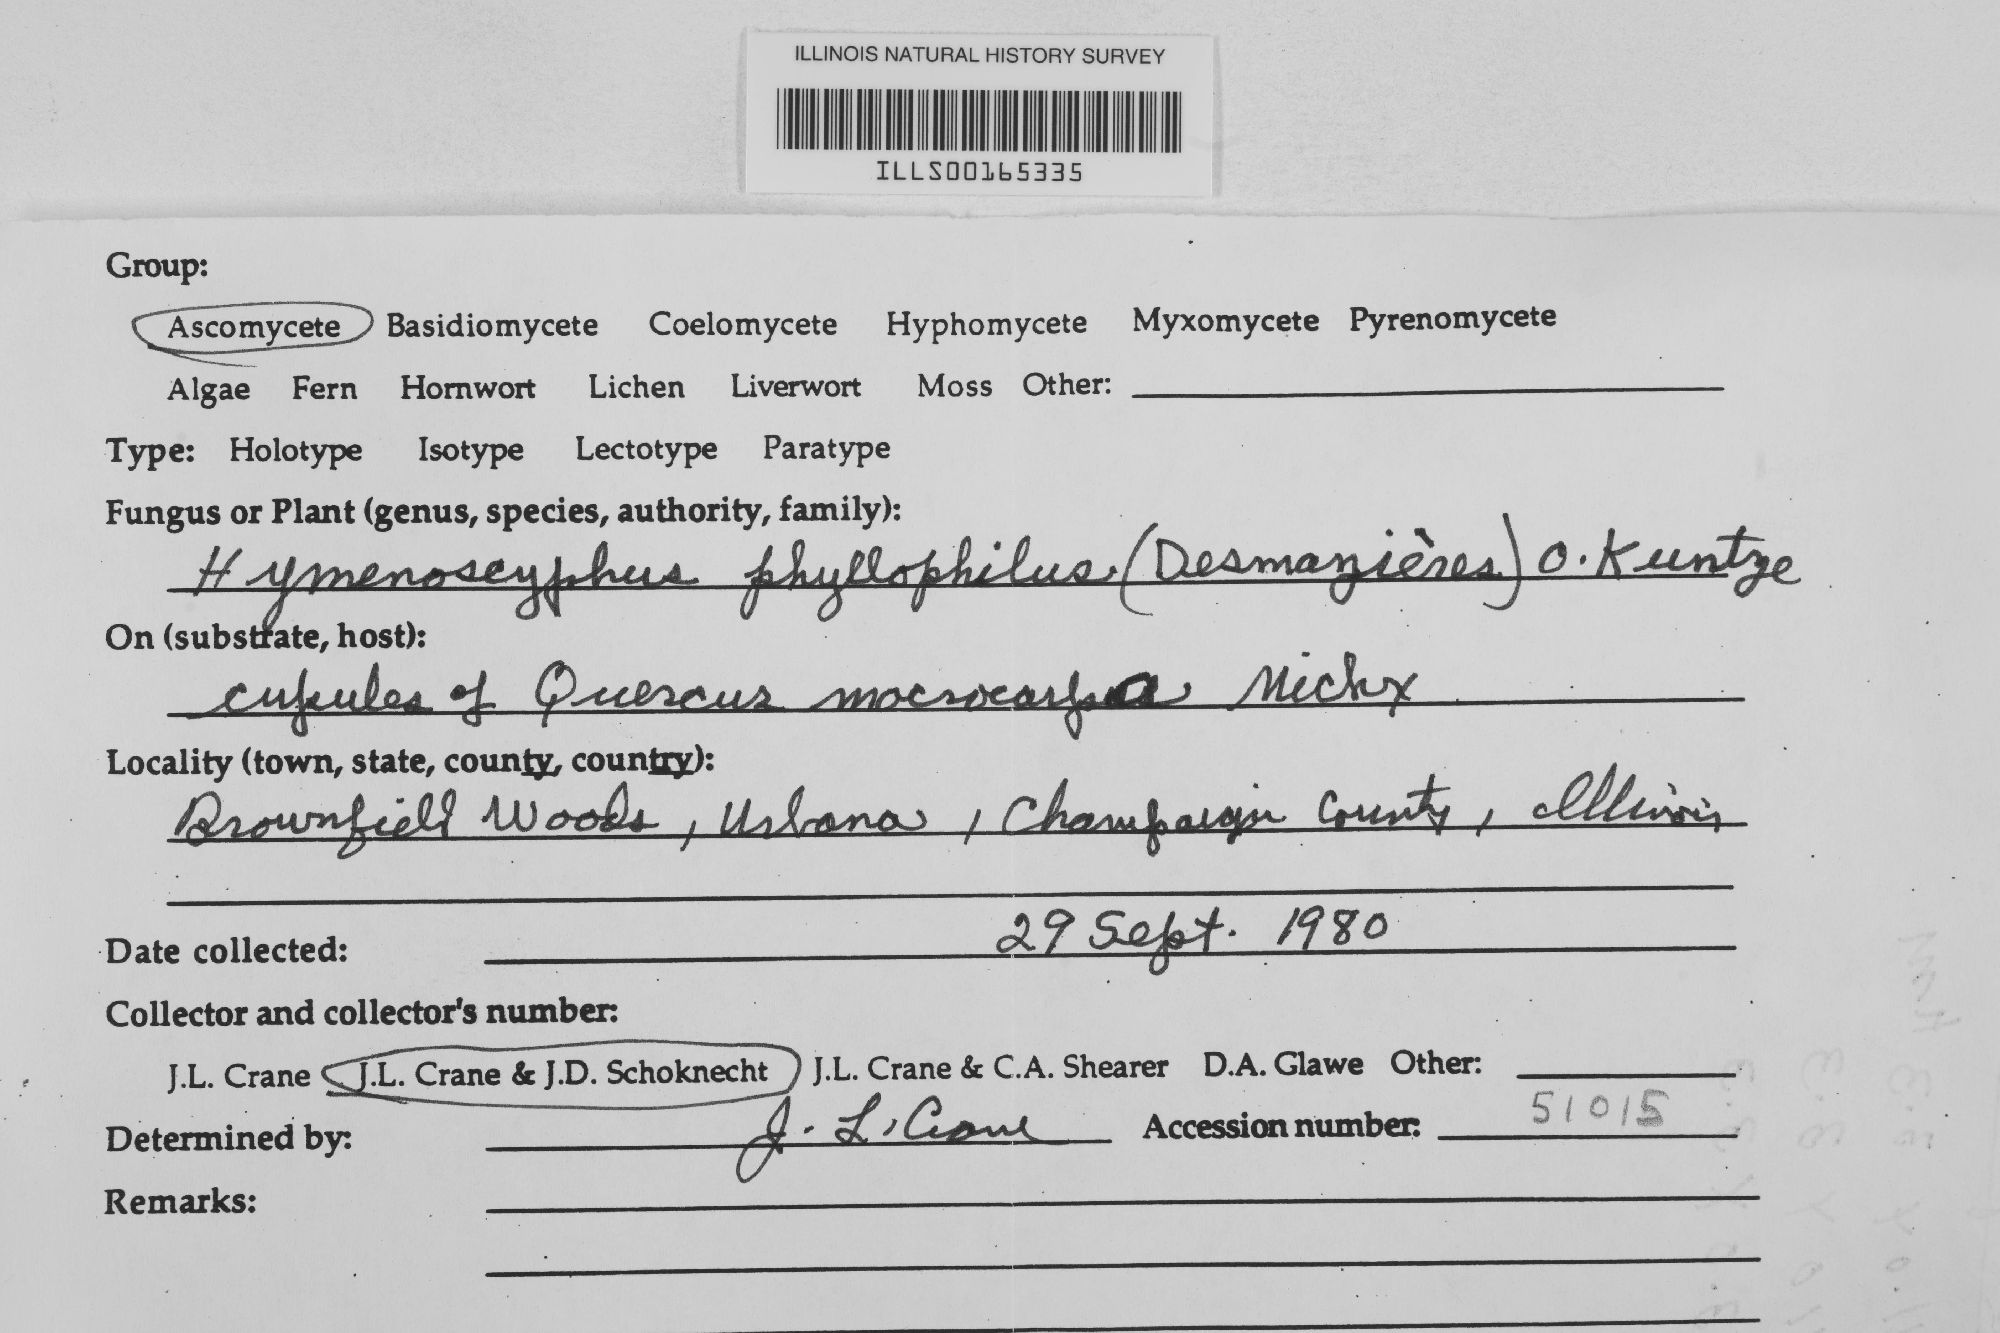 ILLINOIS NATURAL HISTORY SURVEY
ILLS00165335
Group:
Ascomycete Basidiomycete Coelomycete Hyphomycete Myxomycete Pyrenomycete
Algae Fern Hornwort Lichen Liverwort Moss Other:
Type: Holotype Isotype Lectotype Paratype
Fungus or Plant (genus, species, authority, family):
Hymenoscyphus phyllophilus (Desmazières) O. Kuntze
On (substrate, host):
cupules of Quercus macrocarpa Michx
Locality (town, state, county, country):
Brownfield Woods, Urbana, Champaign County, Illinois
Date collected: 29 Sept. 1980
Collector and collector's number:
J.L. Crane J.L. Crane & J.D. Schoknecht J.L. Crane & C.A. Shearer D.A. Glawe Other:
Determined by: J. L. Crane Accession number: 51015
Remarks: